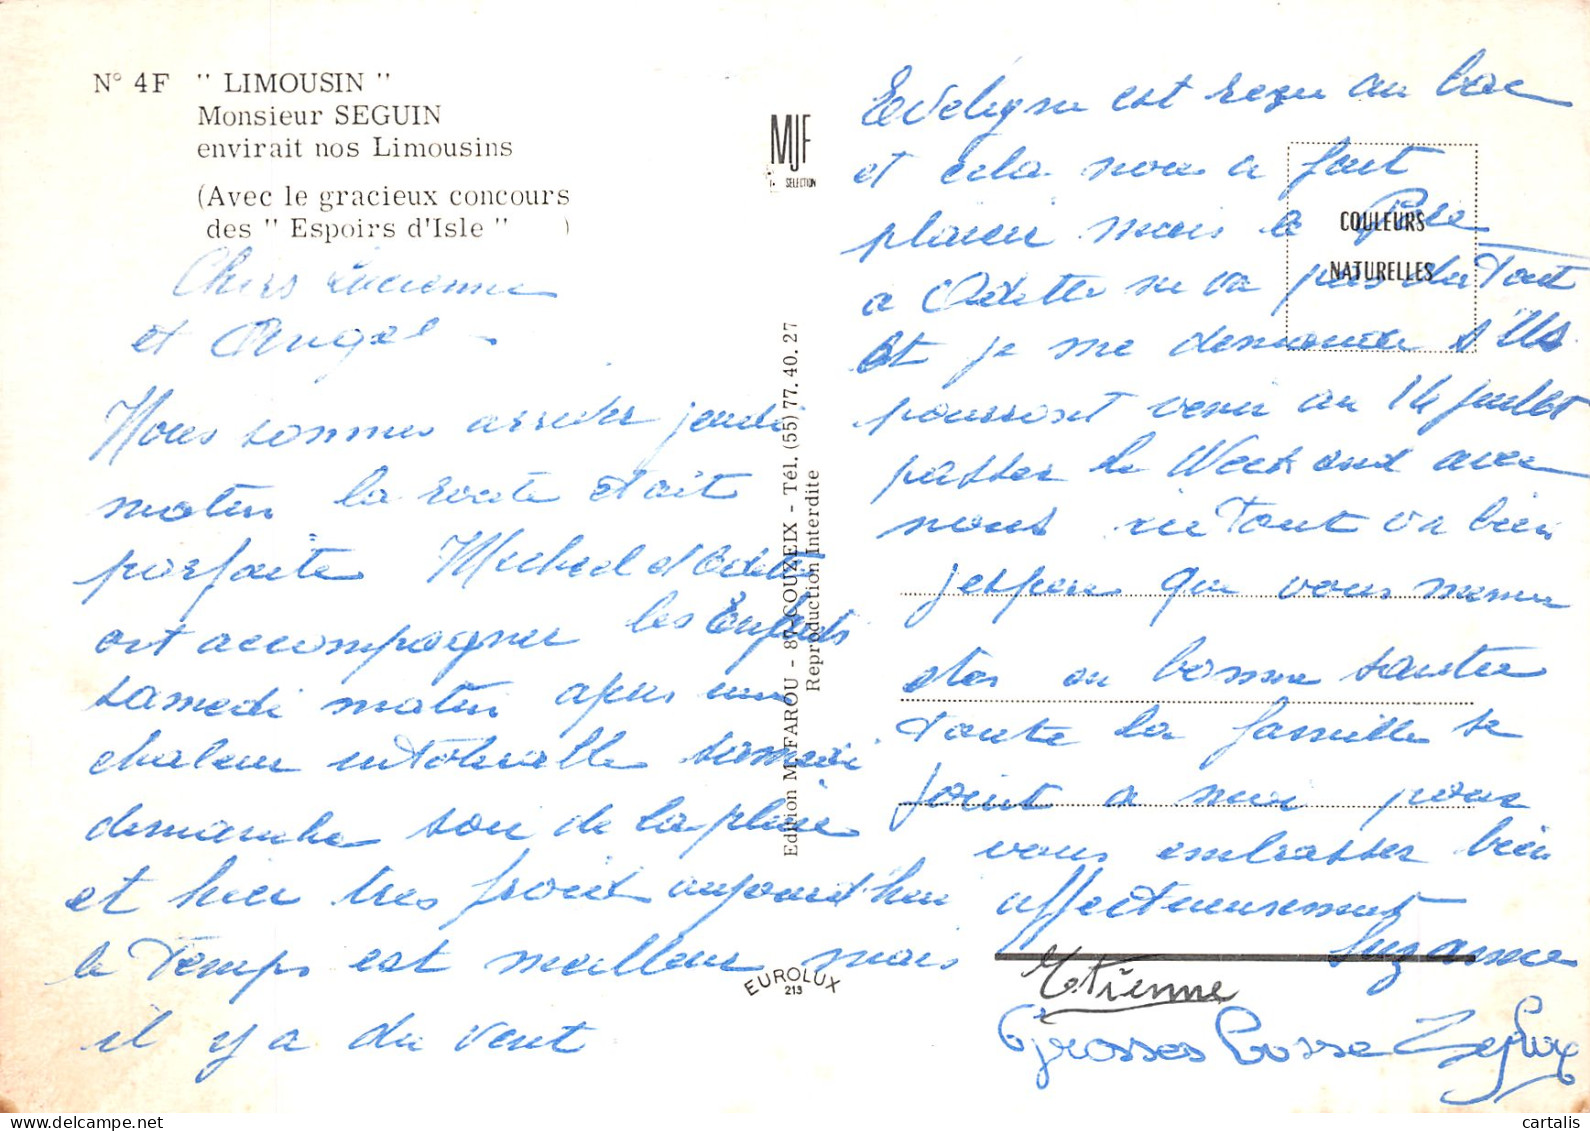 N° 4F " LIMOUSIN "
Monsieur SEGUIN
envirait nos Limousins
(Avec le gracieux concours
des " Espoirs d'Isle " )
Chers Lucienne
et Angel
Nous sommes arrivés jeudi
matin la route était
parfaite Michel et Odette
ont accompagner les Enfants
samedi matin après une
chaleur intolerable samedi
dimanche soir de la pluie
et hier tres froid aujourd'hui
le Temps est meilleur mais
il y a du vent
MJF
SELECTION
Edition M. FAROU - 87-COUZEIX - Tél. (55) 77. 40. 27
Reproduction Interdite
EUROLUX
213
COULEURS
NATURELLES
est reçu au bac
et cela nous a fait
plaisir mais le Père
a Odette ne va pas du Tout
Et je me demande s'Ils
pourront venir au 14 Juillet
passer le Week end avec
nous ici Tout va bien
j'espère que vous meme
etes en bonne santée
Toute la famille se
joint a moi pour
vous embrasser bien
affectueusement
Suzanne
Etienne
Grosses